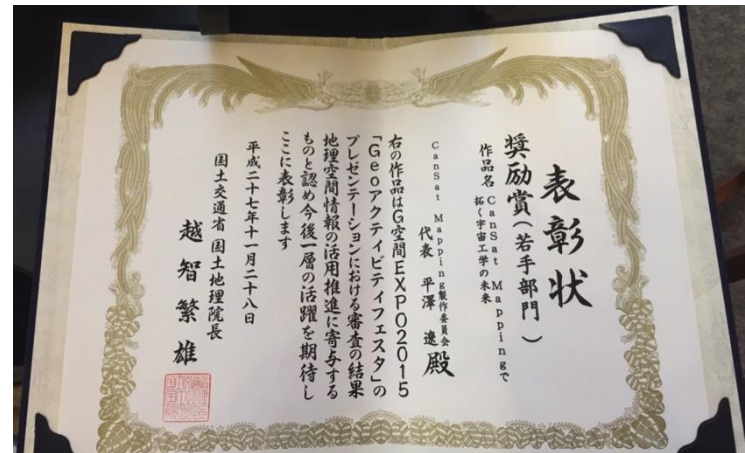 表彰状
奨励賞(若手部門)
作品名 CanSat Mappingで
拓く宇宙工学の未来
CanSat Mapping製作委員会
代表 平澤 遼 殿
右の作品はG空間EXPO2015
「Geoアクティビティフェスタ」の
プレゼンテーションにおける審査の結果
地理空間情報の活用推進に寄与する
ものと認め今後一層の活躍を期待し
ここに表彰します
平成二十七年十一月二十八日
国土交通省 国土地理院長
越智繁雄